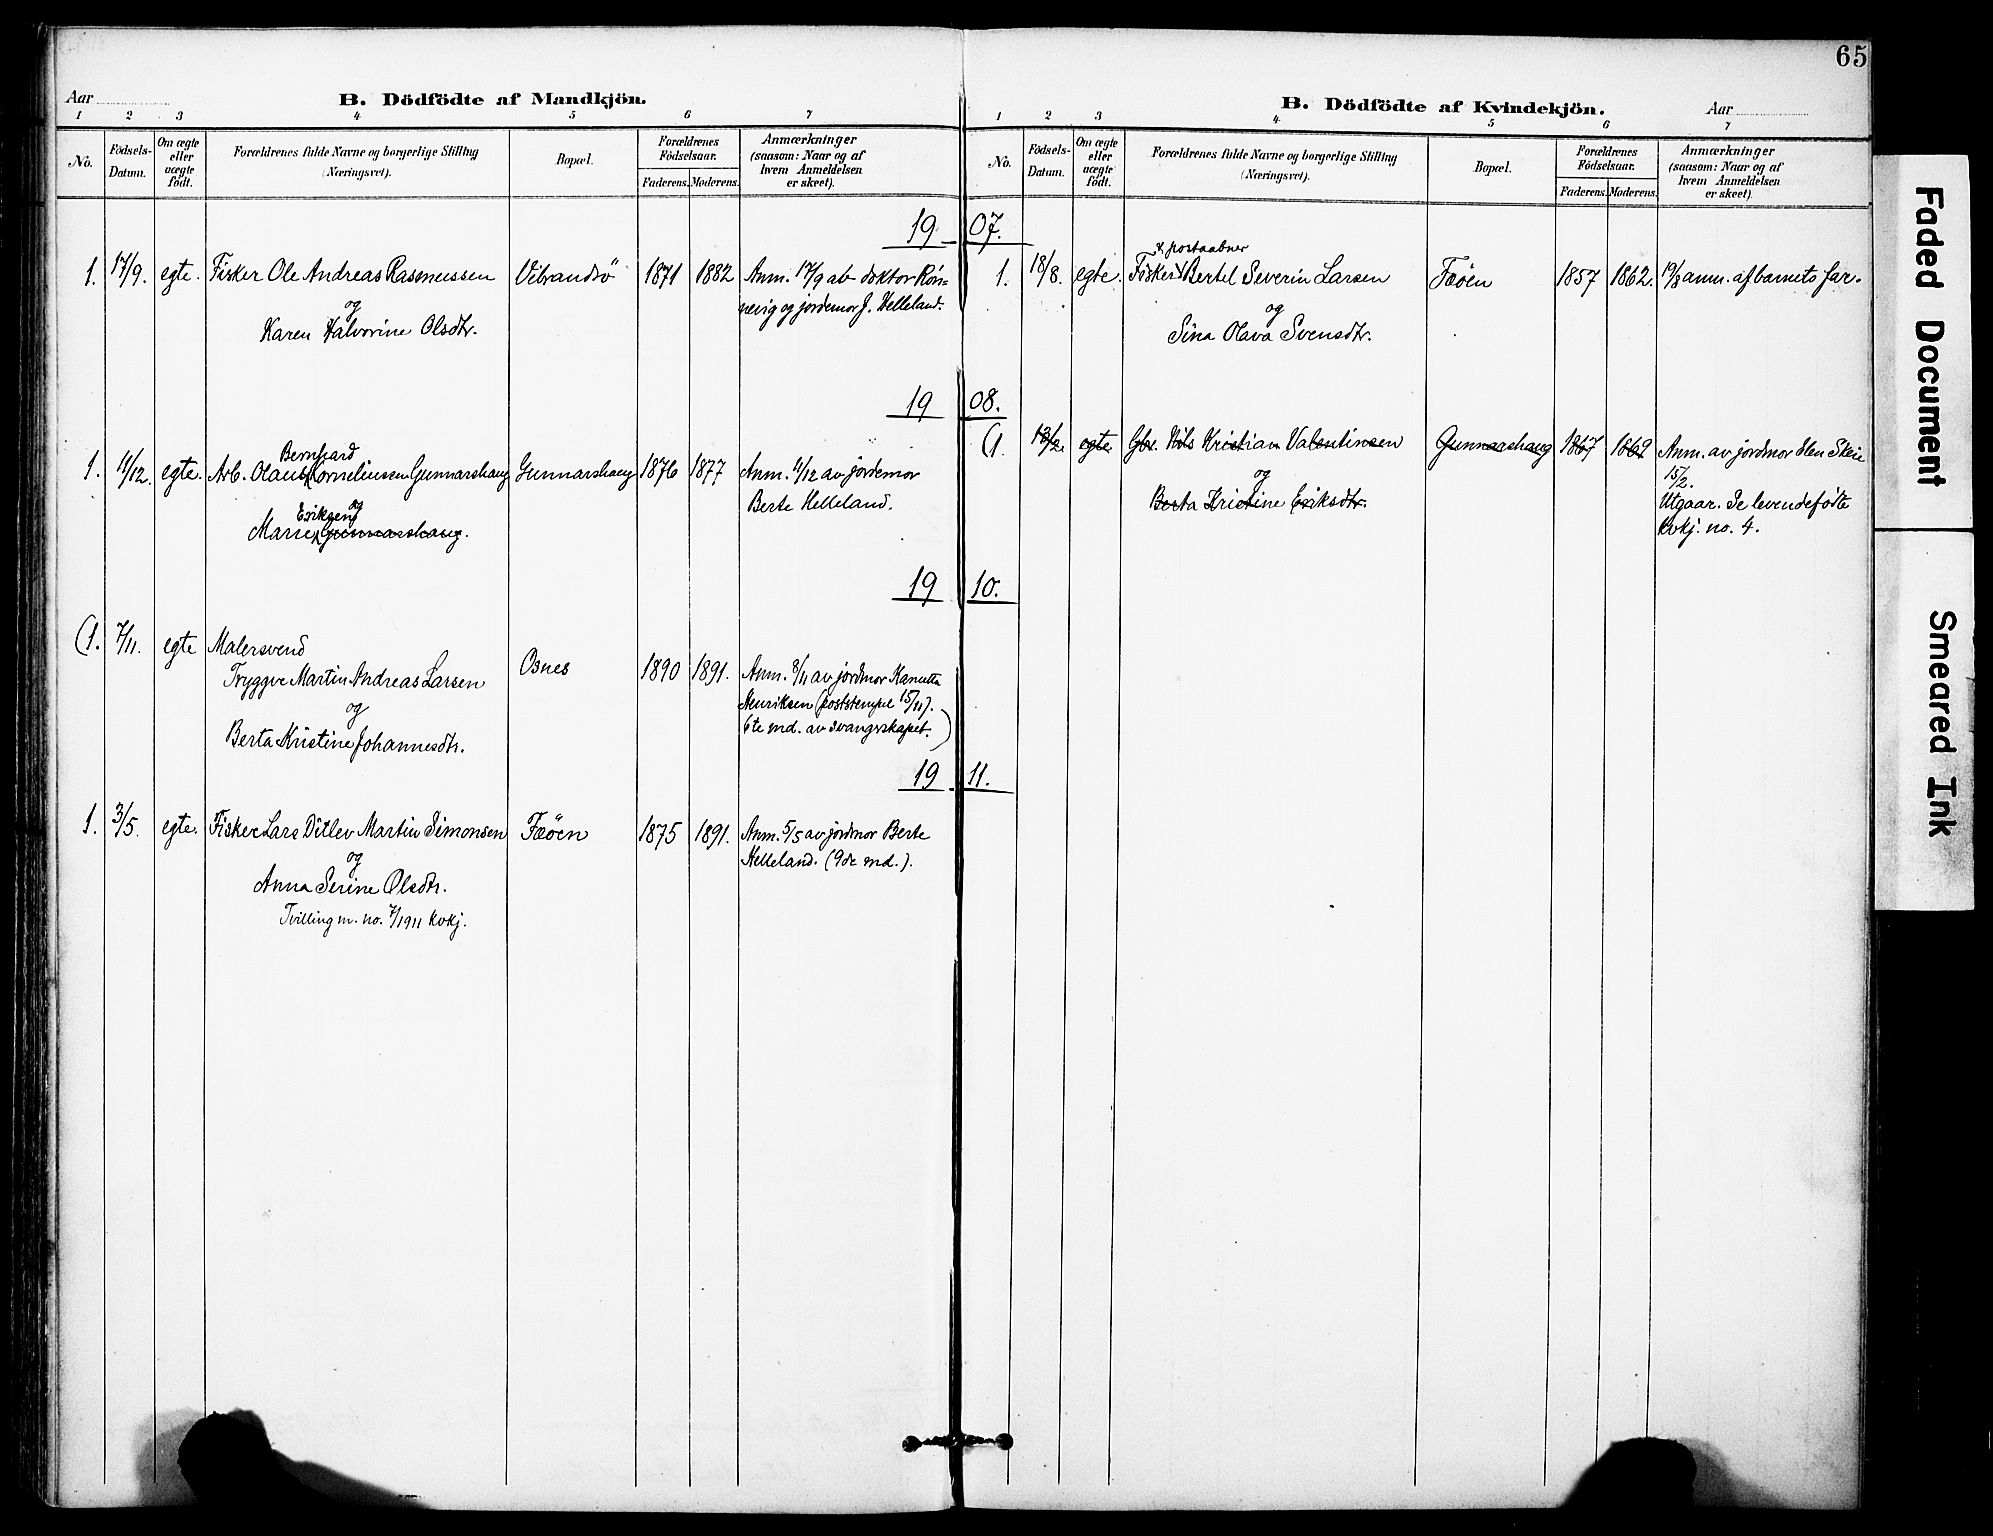 65
Aar
B. Dödfödte af Mandkjön.
1 2 3 4 5 6 7
No.
Födsels-
Datum.
Om ægte
eller
uægte
födt.
Forældrenes fulde Navne og borgerlige Stilling
(Næringsvei).
Bopæl.
Forældrenes
Födselsaar.
Faderens. Moderens.
Anmærkninger
(saasom: Naar og af
hvem Anmeldelsen
er skeet).
B. Dödfödte af Kvindekjön.
Aar
1 2 3 4 5 6 7
No.
Födsels-
Datum.
Om ægte
eller
uægte
födt.
Forældrenes fulde Navne og borgerlige Stilling
(Næringsvei).
Bopæl.
Forældrenes
Födselsaar.
Faderens. Moderens.
Anmærkninger
(saasom: Naar og af
hvem Anmeldelsen
er skeet).
19 07.
1. 17/9. egte. Fisker Ole Andreas Rasmussen Vibrandsö 1871 1882 Anm. 17/9 av doktor Rön=
og
nevig og jordemor J. Helleland.
Karen Halvorine Olsdtr.
& postaabner
1. 18/8. egte. Fisker Bertel Severin Larsen Fæöen 1857 1862. 19/8 anm. af barnets far.
og
Sina Olava Svensdtr.
19 08.
Bernhard
1. 11/12. egte. Arb. Olaus Corneliussen Gunnarshaug Gunnarshaug 1876 1877 Anm. 11/12 av jordemor
og
Berte Helleland.
Eriksen
Marie Gunnarshaug.
(1. 13/2 egte Gbr. Nils Kristian Valentinsen Gunnarshaug 1867 1862 Anm. av jordmor Elen Skeie
og
15/2.
Berta Kristine Eriksdtr.
Utgaar. Se levendefødte
kvkj. no. 4.
19 10.
(1. 7/11. egte Malersvend
Tryggve Martin Andreas Larsen Osnes 1890 1891. Anm. 8/11 av jordmor Kanutta
og
Henriksen (poststempel 15/11).
6te md. av svangrskapet.)
Berta Kristine Johannesdtr.
19 11.
1. 3/5. egte. Fisker Lars Ditlev Martin Simonsen Fæöen 1875 1891. Anm. 5/5 av jordmor Berte
og
Helleland. (9de md.).
Anna Serine Olsdtr.
Tvilling m. no. 7/1911 kvkj.
Faded Document
Smeared Ink